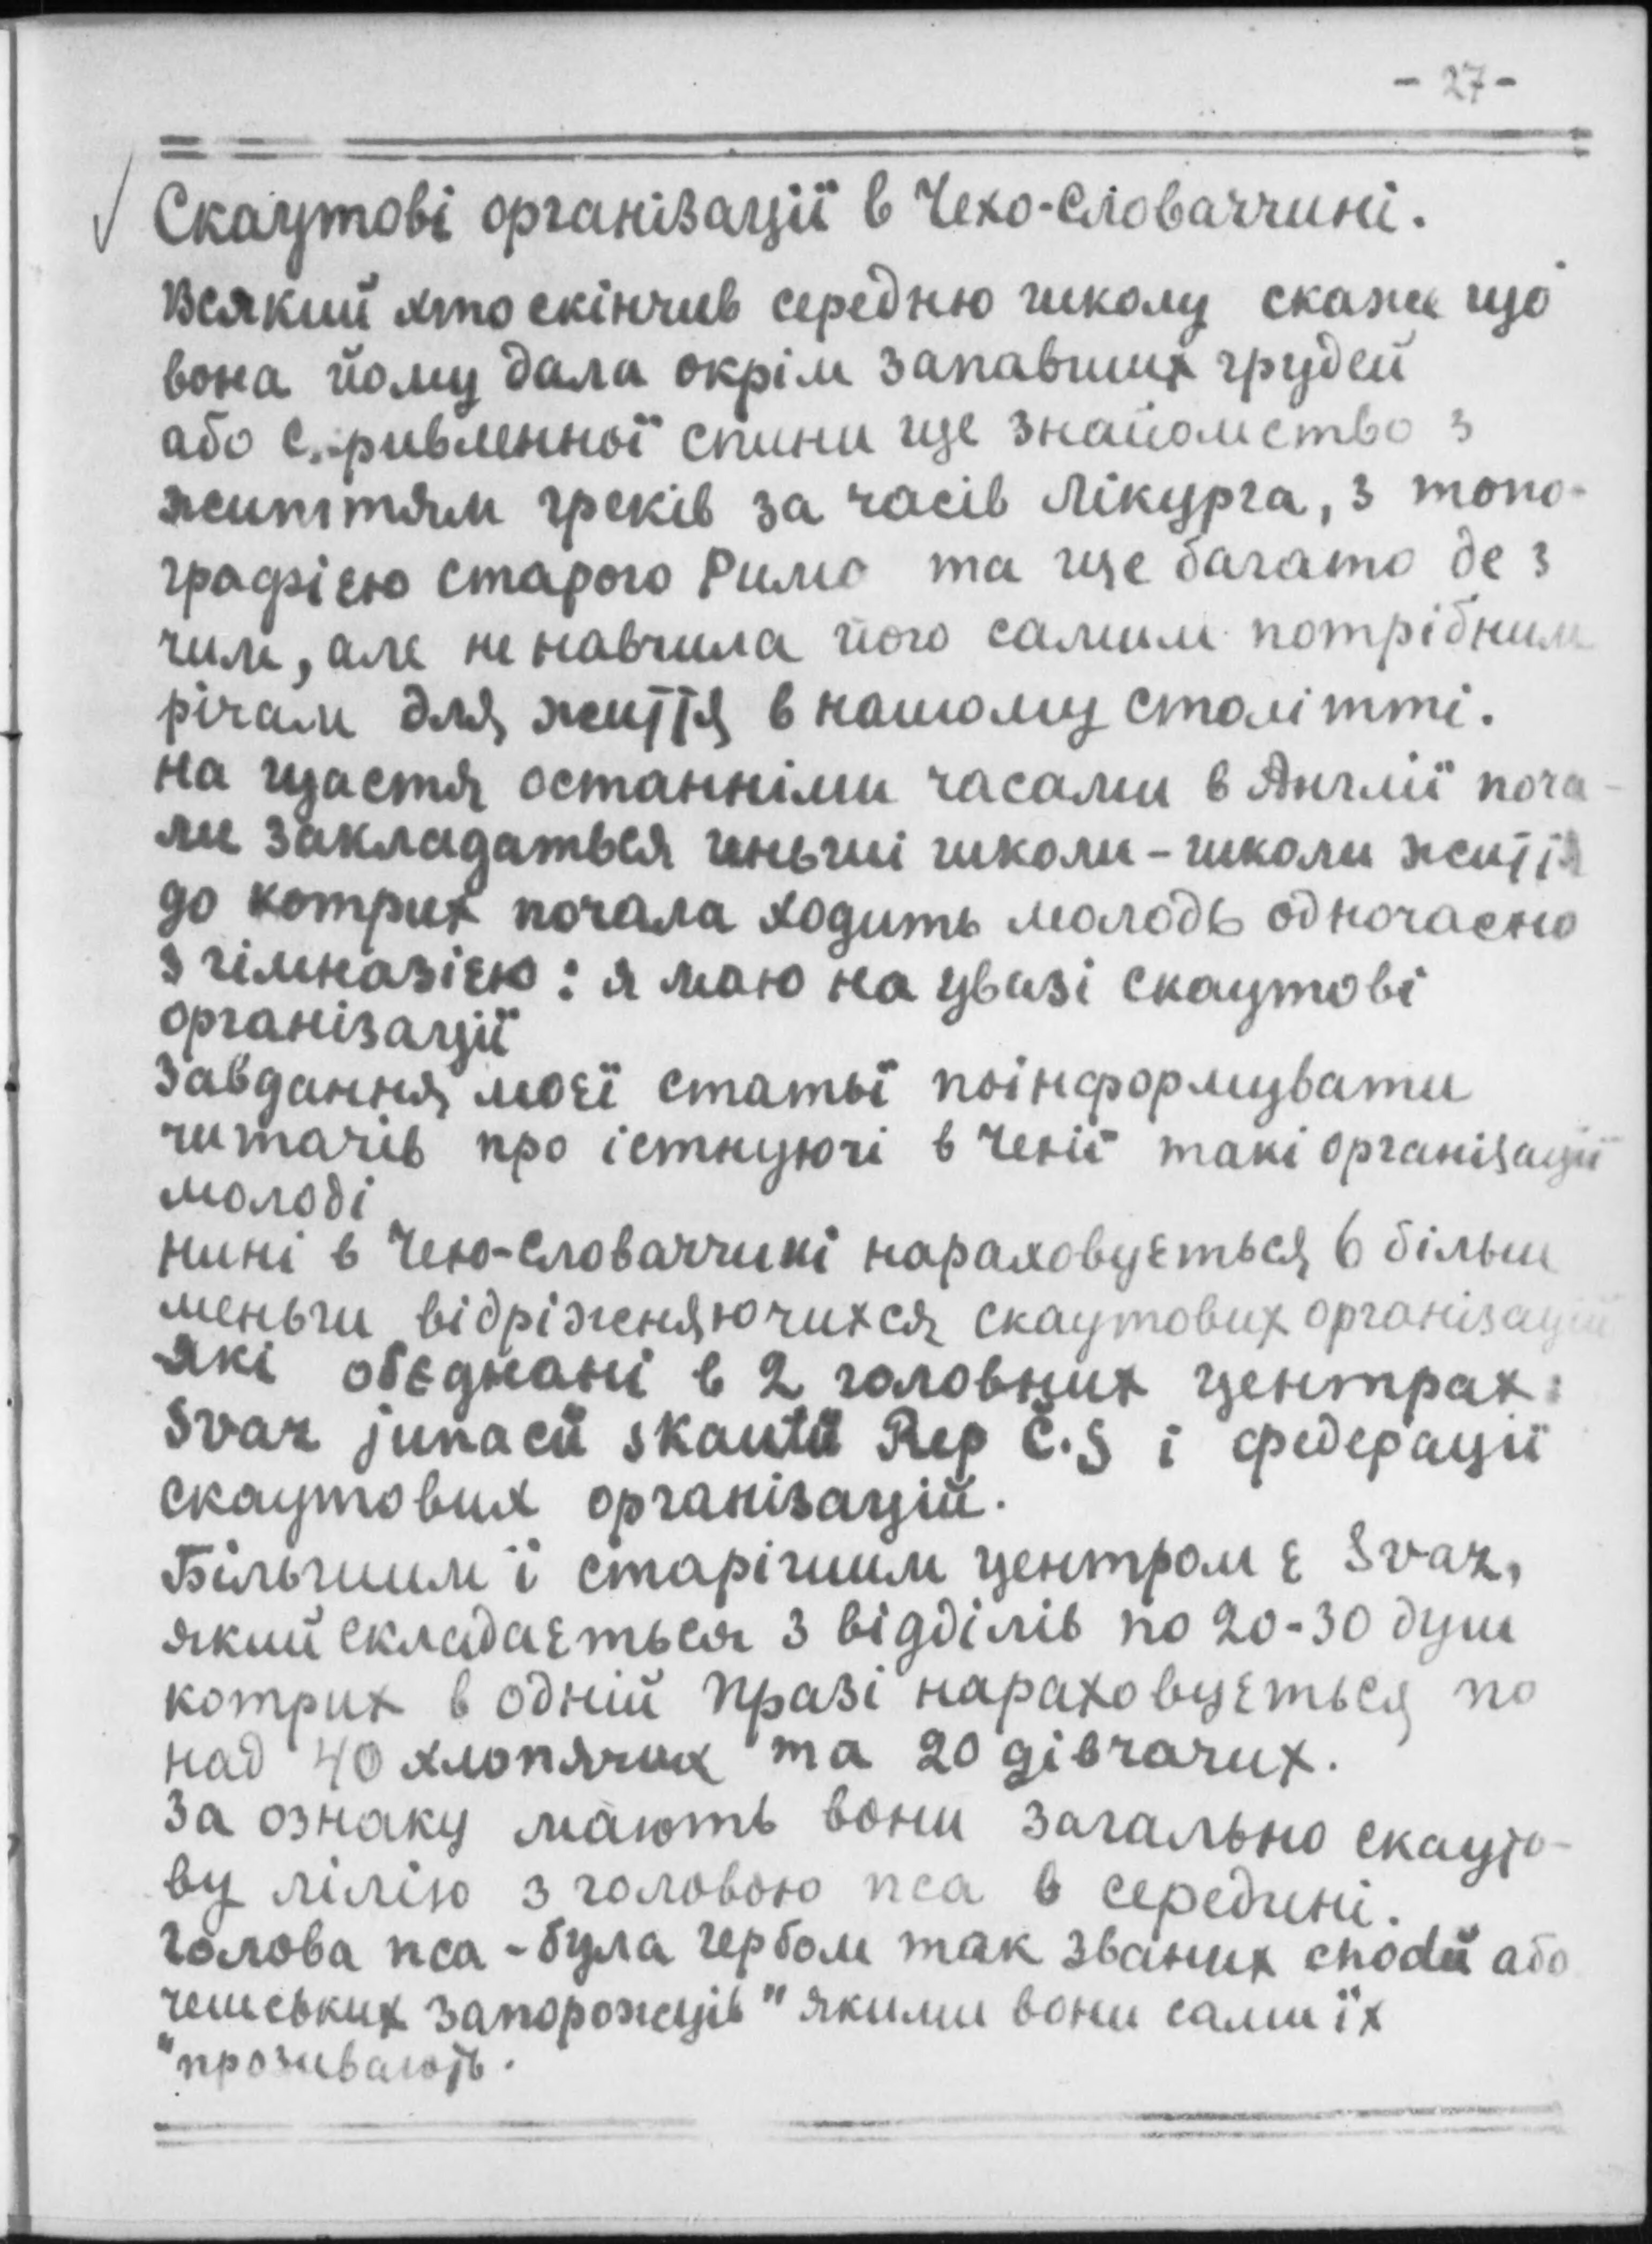 - 27 -
Скаутові організації в Чехо-Словаччині.
Всякий хто скінчив середню школу скаже що
вона йому дала окрім запавших грудей
або скривленної спини ще знайомство з
життям греків за часів Лікурга, з топо-
графією старого Рима та ще багато де з
чим, але не навчила його самим потрібним
річам для життя в нашому столітті.
на щастя останніми часами в Англії поча-
ли закладаться иньші школи - школи життя
до котрих почала ходить молодь одночасно
з гімназією: я маю на увазі скаутові
організації
Завдання моєї статьї поінформувати
читачів про істнуючі в Чехії такі організації
молоді
нині в Чехо-Словаччині нараховується 6 більш
меньш відріжняючихся скаутових організацій
які обєднані в 2 головних центрах:
Svaz junaců skautů Rep Č.S і федерації
скаутових організацій.
Більшим і старішим центром є Svaz,
який складається з відділів по 20-30 душ
котрих в одній Празі нараховується по
над 40 хлопячих та 20 дівчачих.
За ознаку мають вони загально скауто-
ву лілію з головою пса в середині.
голова пса - була гербом так званих chodů або
чешських запорожців" якими вони сами їх
"прозивають.